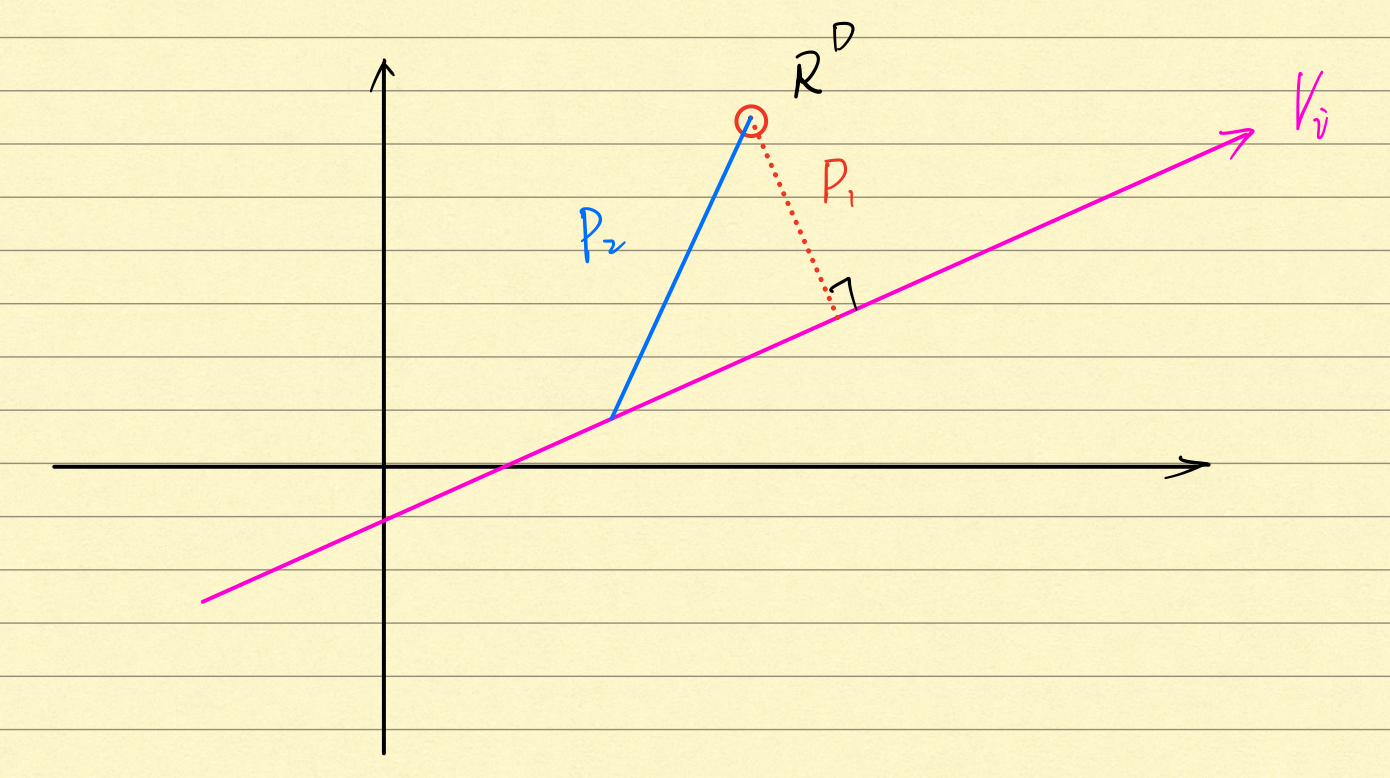 R^D
V_j
P_1
P_2